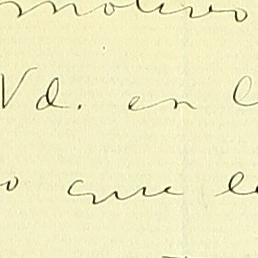 motivo
Vd. en
que